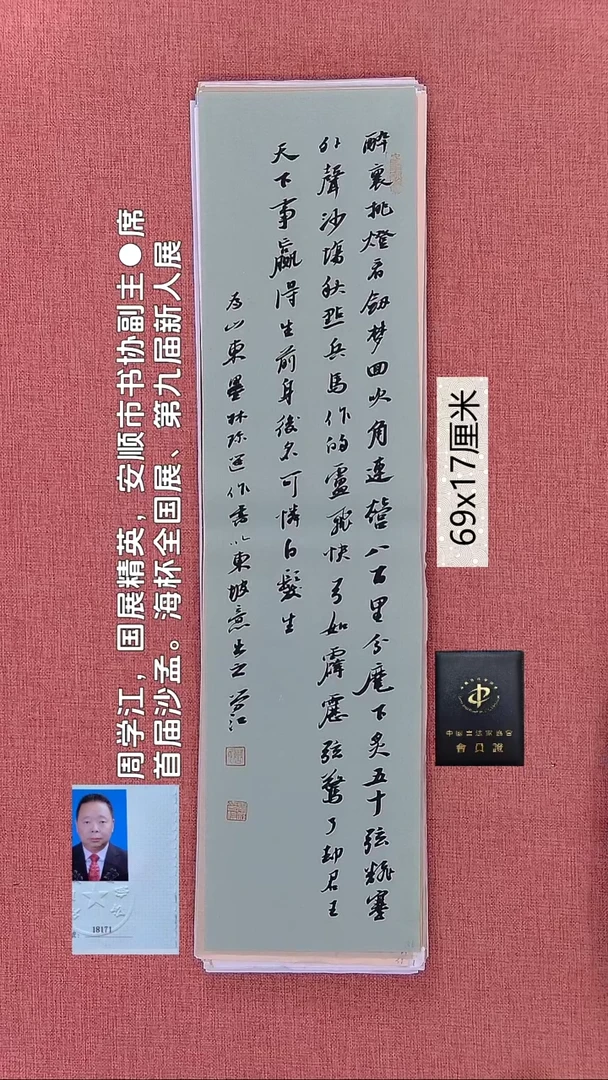 醉裏挑燈看劔梦回吹角連營八百里分麾下炙五十弦翻塞
外聲沙場秋點兵馬作的盧飛快弓如霹靂弦驚了却君王
天下事贏得生前身後名可憐白髮生
为山東墨林 作書以東坡意出之 学江
周学江，国展精英，安顺市书协副主●席
首届沙孟。海杯全国展、第九届新人展
69x17厘米
18171